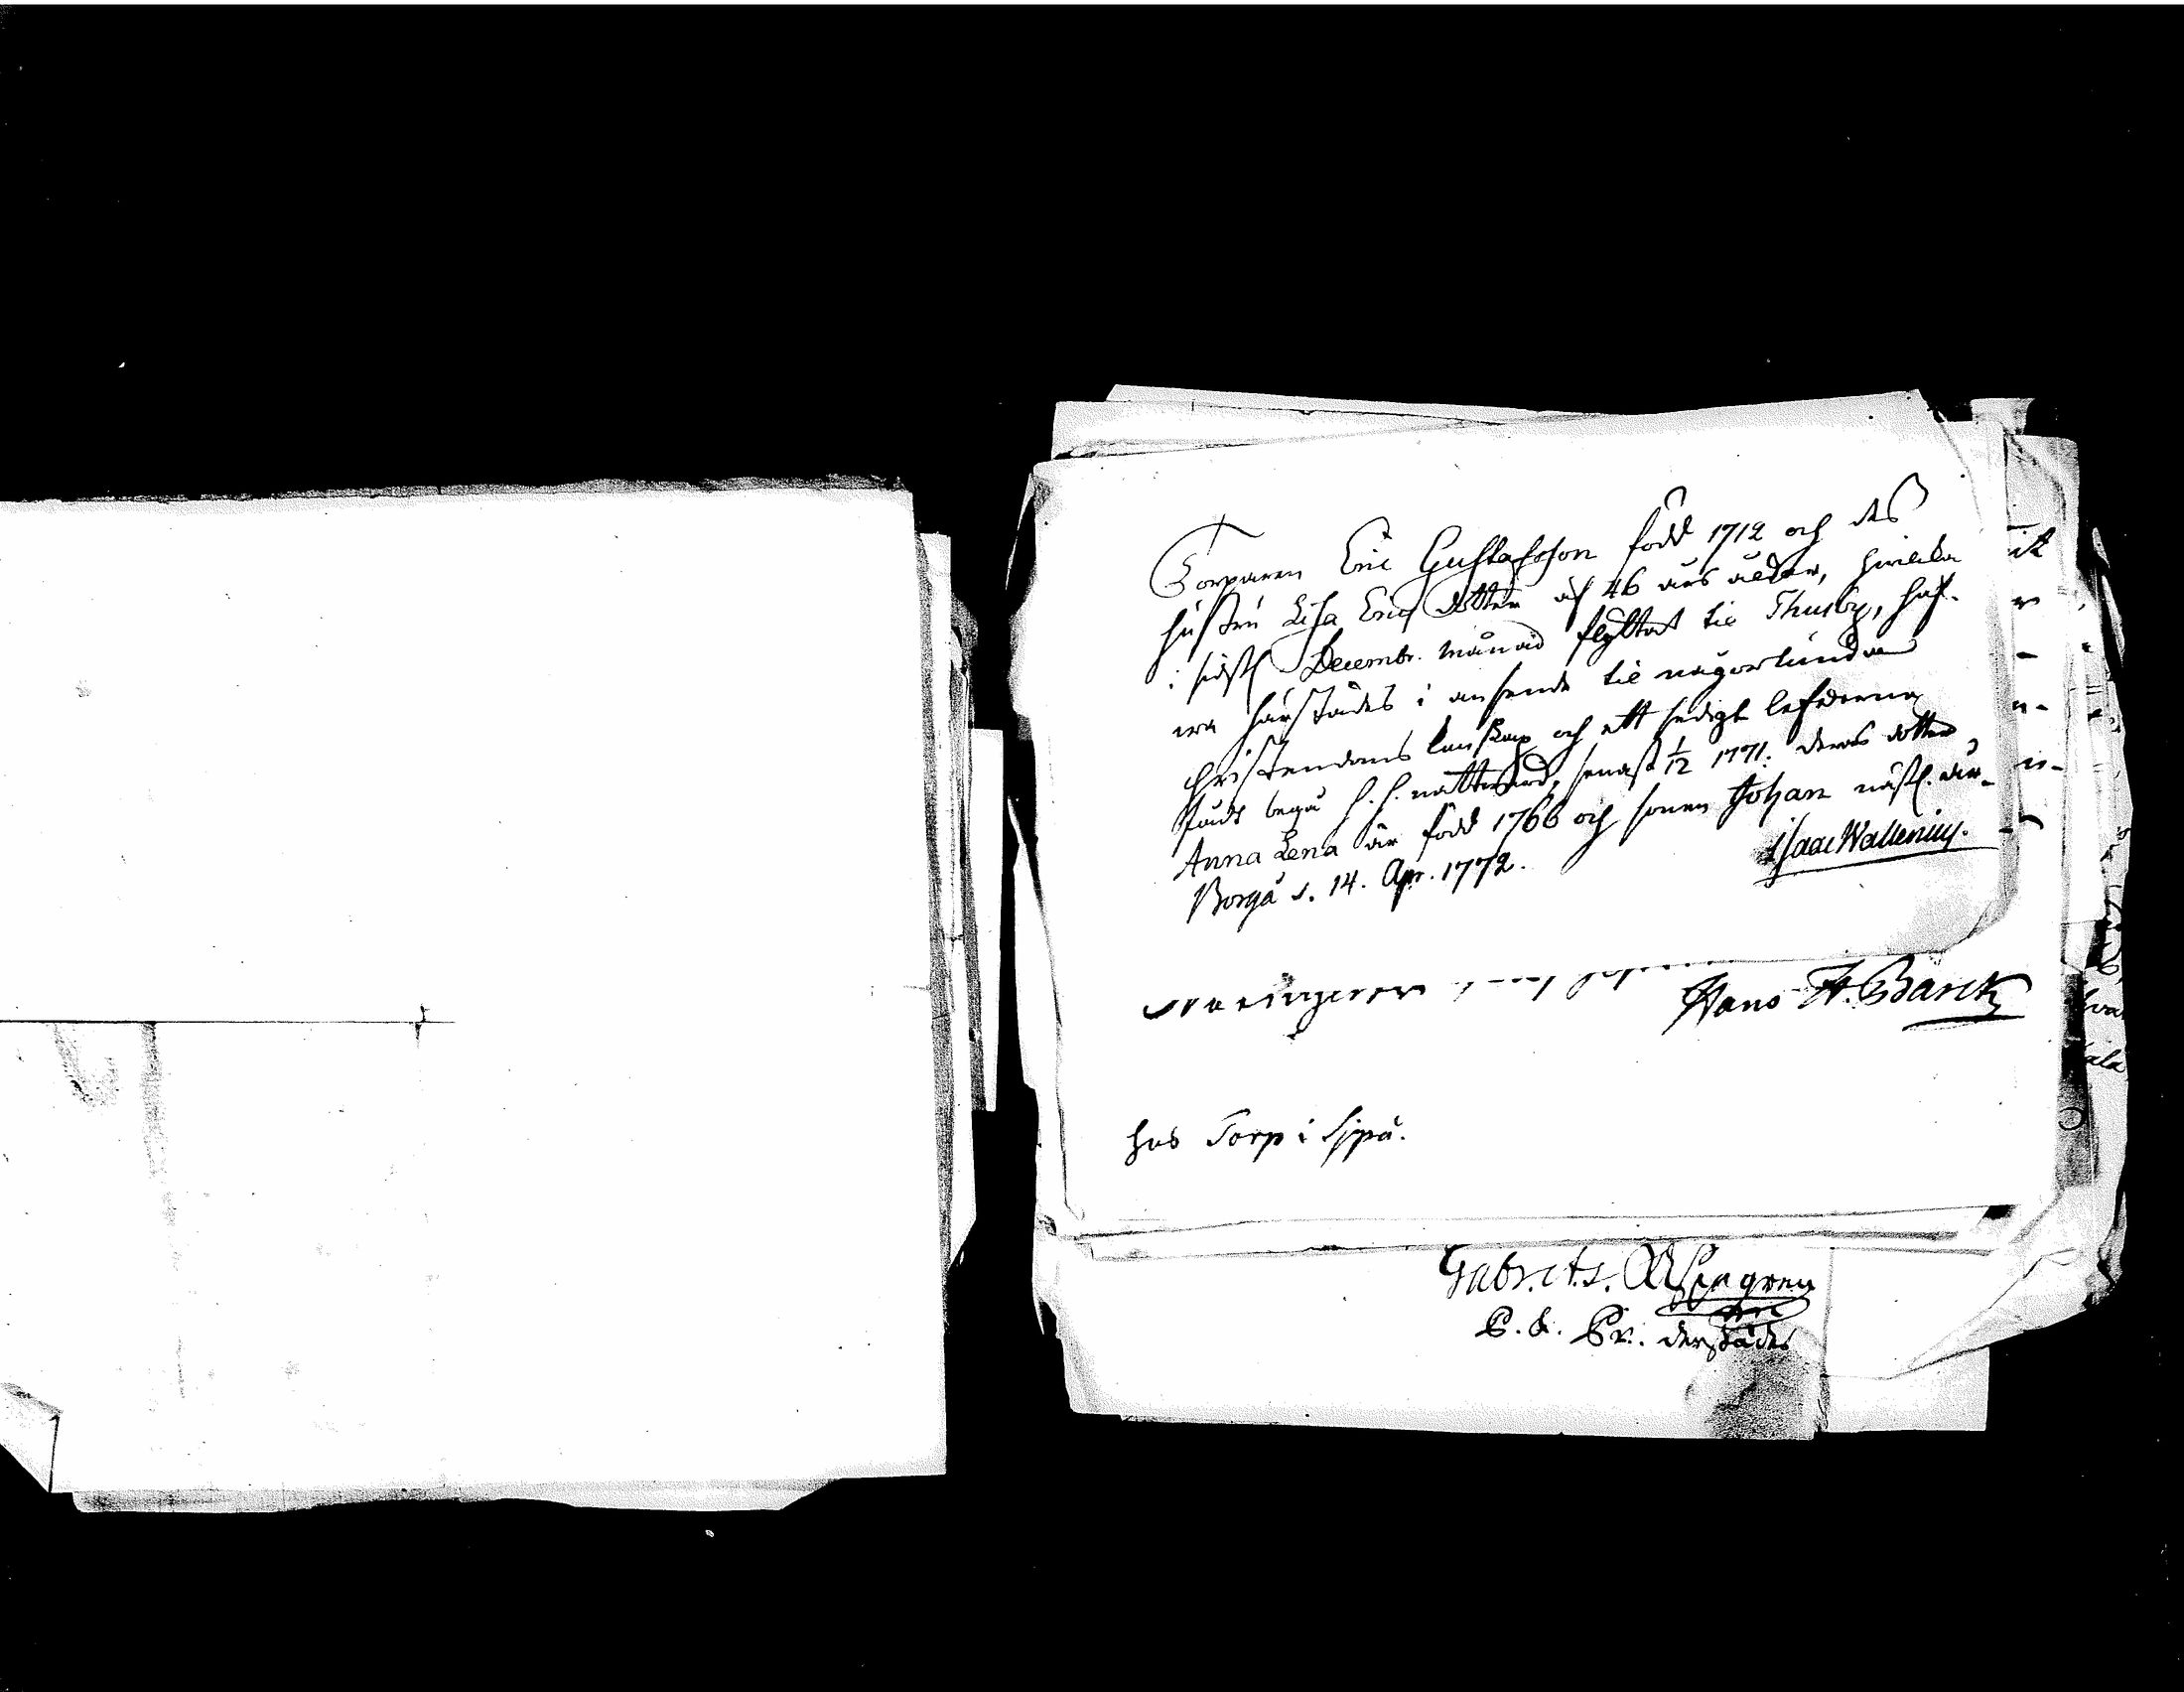 Torparen Eric Gustafsson född 1712 och des
hustru Lisa Ericsdotter af 46 års ålder, hvilcka
i sidstl. Decembr. månad flyttat til Thusby, haf-
wa härstädes i anseende til någorlunda
christendoms kunskap och ett sedigt lefwerne
städs begå h. h. nattward, senast 1/12 1771: deras dotter
Anna Lena är född 1766 och sonen Johan nästl. år.
Borgå d. 14. Apr. 1772.
Isaac Wallenius.
Hans H. Barck
hos Torp i Sjpå.
Gabr.
P. &. Pr. derstädes